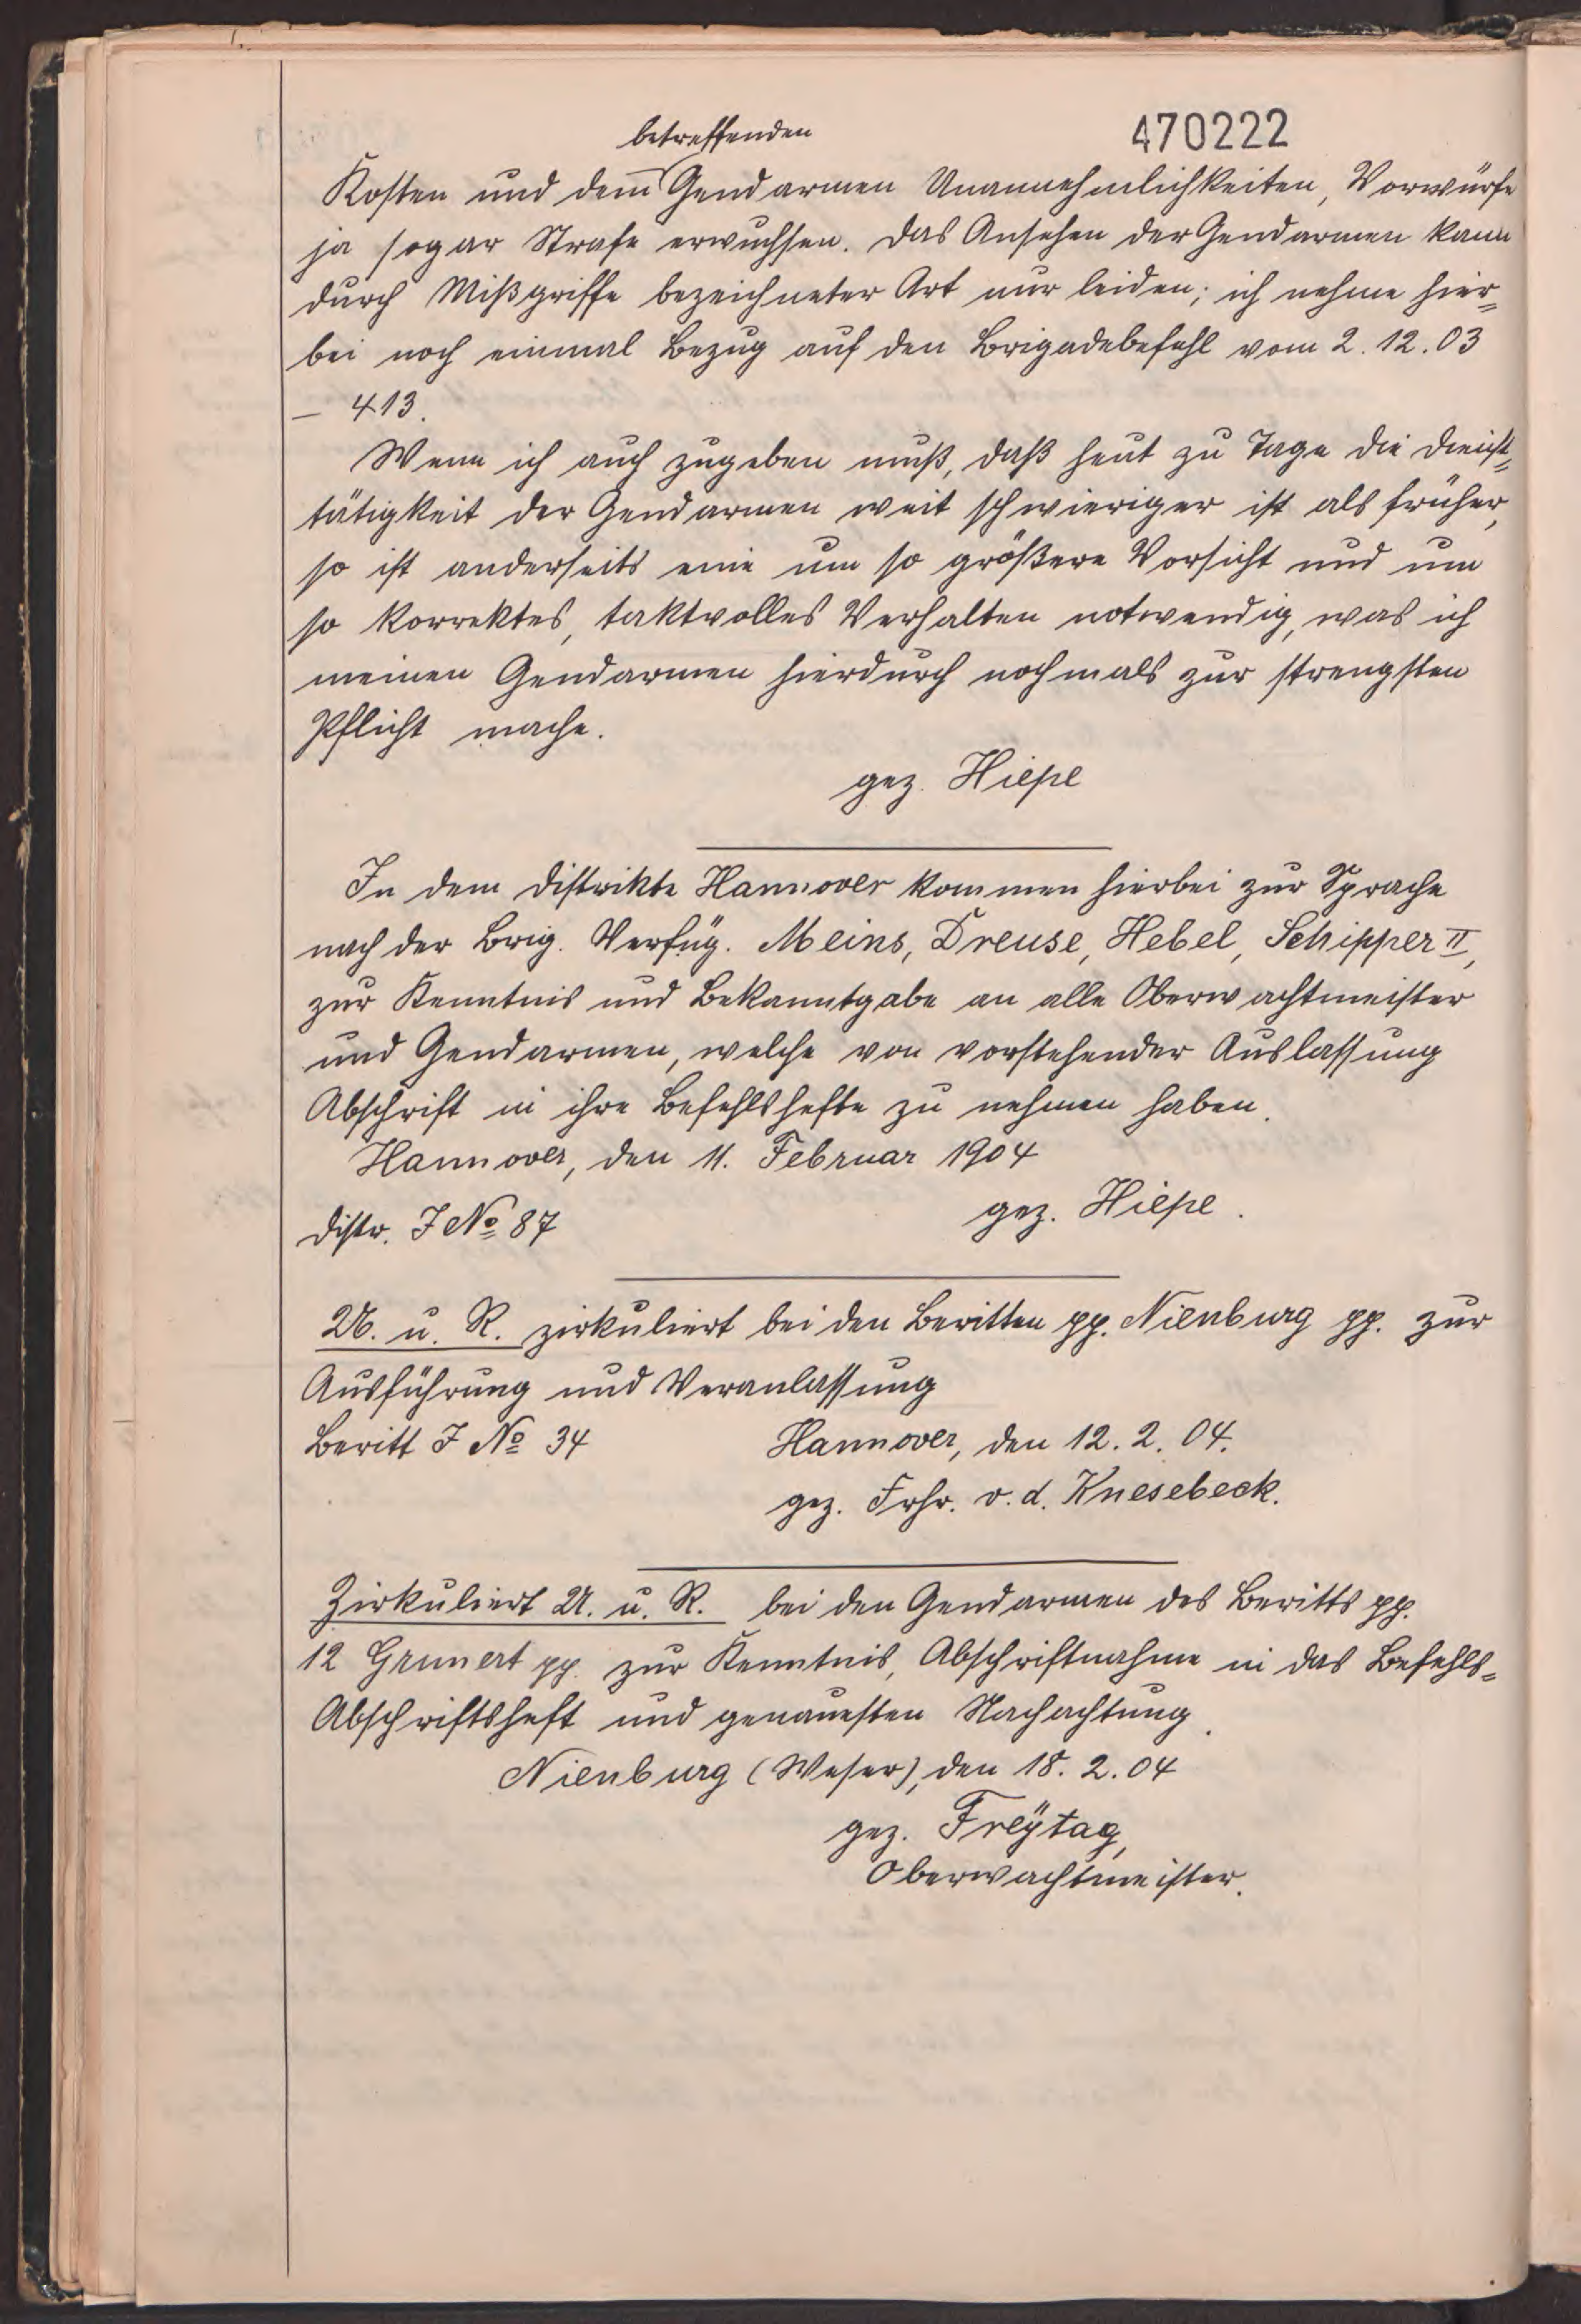 betreffenden
470222
Kosten und dem Gendarmen Unannehmlichkeiten, Vorwürfe
ja sogar Strafe erwuchsen. Das Ansehen der Gendarmen kann
durch Mißgriffe bezeichneter Art nur leiden; ich nehme hier=
bei noch einmal Bezug auf den Brigadebefehl vom 2.12.03
– 413.
Wenn ich auch zugeben muß, daß heut zu Tage die Dienst=
tätigkeit der Gendarmen weit schwieriger ist als früher,
so ist anderseits eine um so größere Vorsicht und um
so korrektes, taktvolles Verhalten notwendig, was ich
meinen Gendarmen hierdurch nochmals zur strengsten
Pflicht mache.
gez. Hiepe
In dem Distrikte Hannover kommen hierbei zur Sprache
nach der Brig. Verfüg. Meins, Dreuse, Hebel, Schipper II,
zur Kenntnis und Bekanntgabe an alle Oberwachtmeister
und Gendarmen, welche von vorstehender Auslassung
Abschrift in ihre Befehlshefte zu nehmen haben.
Hannover, den 11. Februar 1904
gez. Hiepe.
Distr. J No 87
U. u. R. zirkuliert bei den Beritten pp. Nienburg pp. zur
Ausführung und Veranlassung
Beritt J No 34 Hannover, den 12.2.04.
gez. Frhr. v. d. Knesebeck.
Zirkuliert U. u. R. bei den Gendarmen des Beritts pp.
12 Grunert pp. zur Kenntnis, Abschriftnahme in das Befehls=
Abschriftsheft und genauesten Nachachtung.
Nienburg (Weser), den 18.2.04
gez. Freÿtag,
Oberwachtmeister.